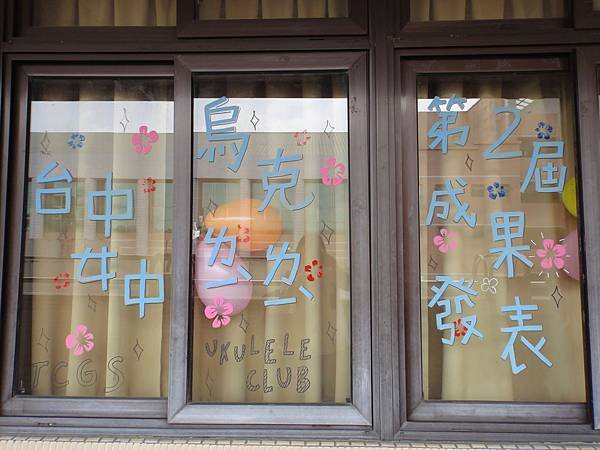 台中女中
TCGS
烏克ㄌㄧˋㄌㄧˋ
UKULELE
CLUB
第2屆
成果
發表